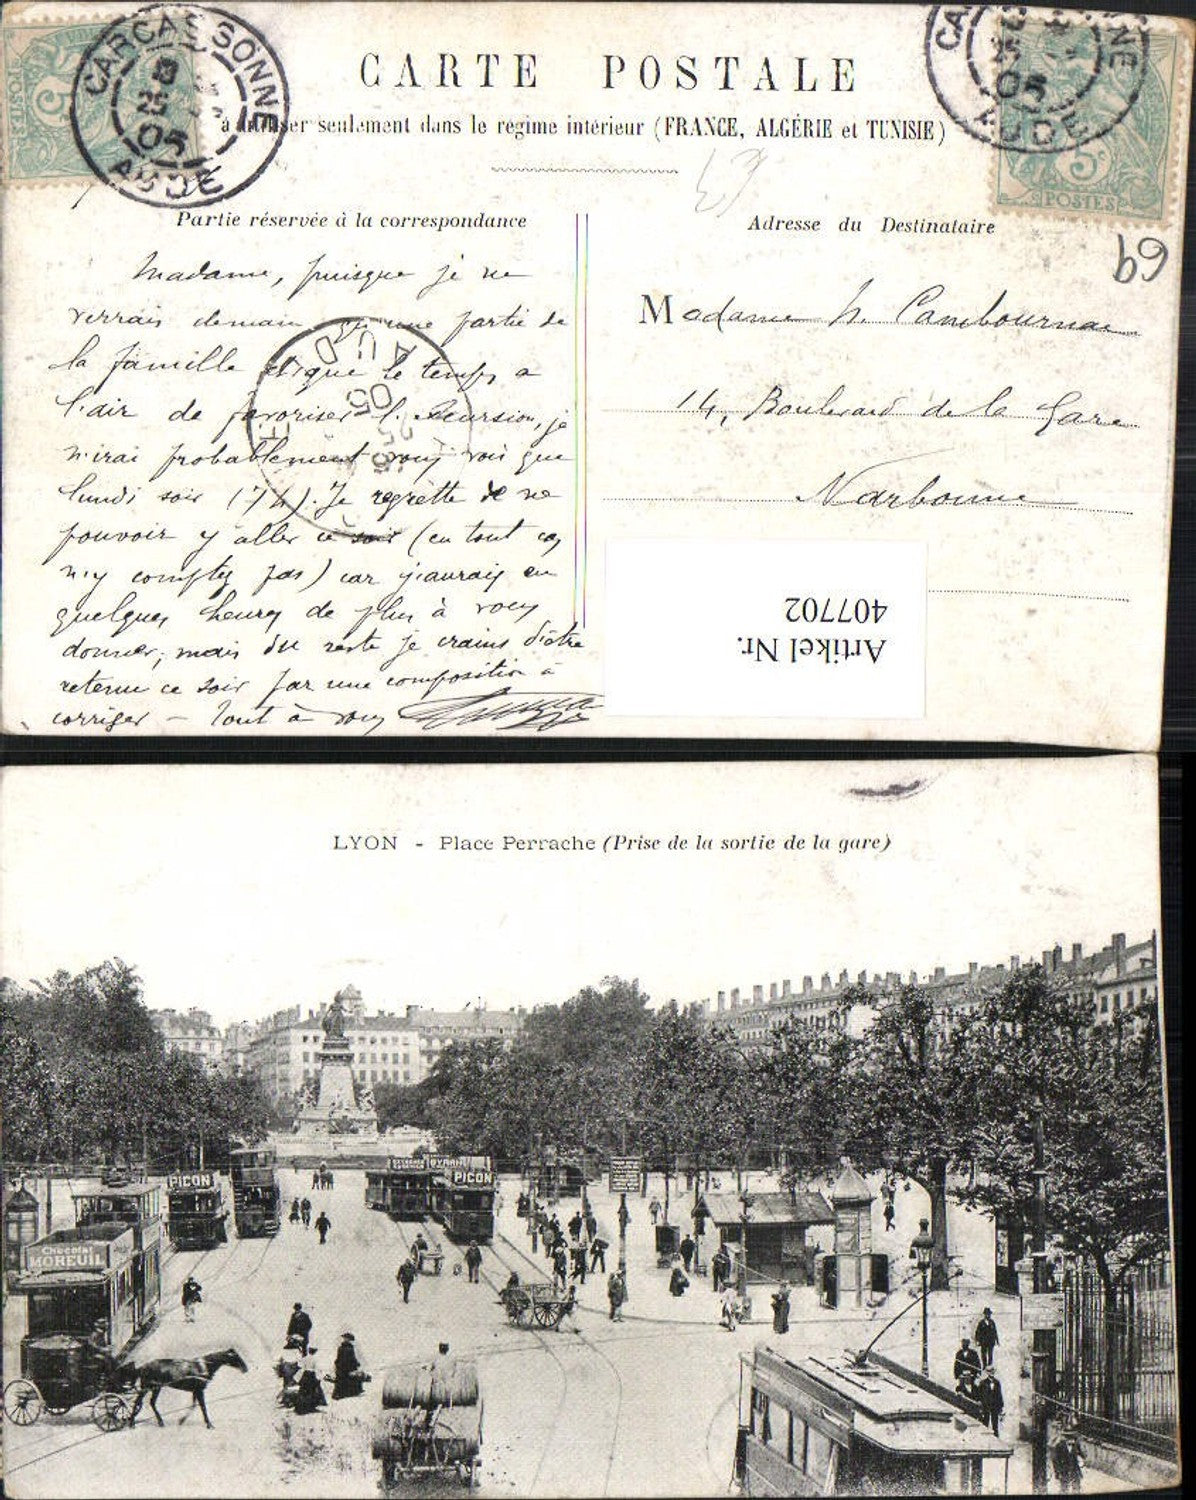 CARCASSONNE
25
05
AUDE
5c
POSTES
CARTE POSTALE
à utiliser seulement dans le régime intérieur (FRANCE, ALGÉRIE et TUNISIE)
Partie réservée à la correspondance
Adresse du Destinataire
69
Madame, puisque je ne
verrais demain qu'une partie de
la famille et que le temps a
l'air de favoriser l'excursion, je
n'irai probablement vous voir que
lundi soir (7h). Je regrette de ne
pouvoir y aller ce soir (en tout cas,
n'y comptez pas) car j'aurais eu
quelques heures de plus à vous
donner; mais du reste je crains d'être
retenu ce soir par une composition à
corriger – Tout à vous
Madame h. Cambournac
14, Boulevard de la Gare
Narbonne
Artikel Nr.
407702
LYON - Place Perrache (Prise de la sortie de la gare)
PICON
PICON
Chocolat
MOREUIL